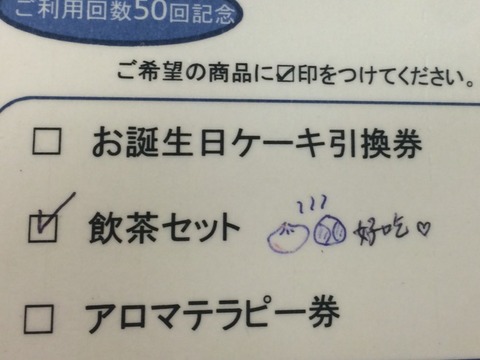 ご利用回数50回記念
ご希望の商品に☑印をつけてください。
☐ お誕生日ケーキ引換券
☑ 飲茶セット 好吃♡
☐ アロマテラピー券